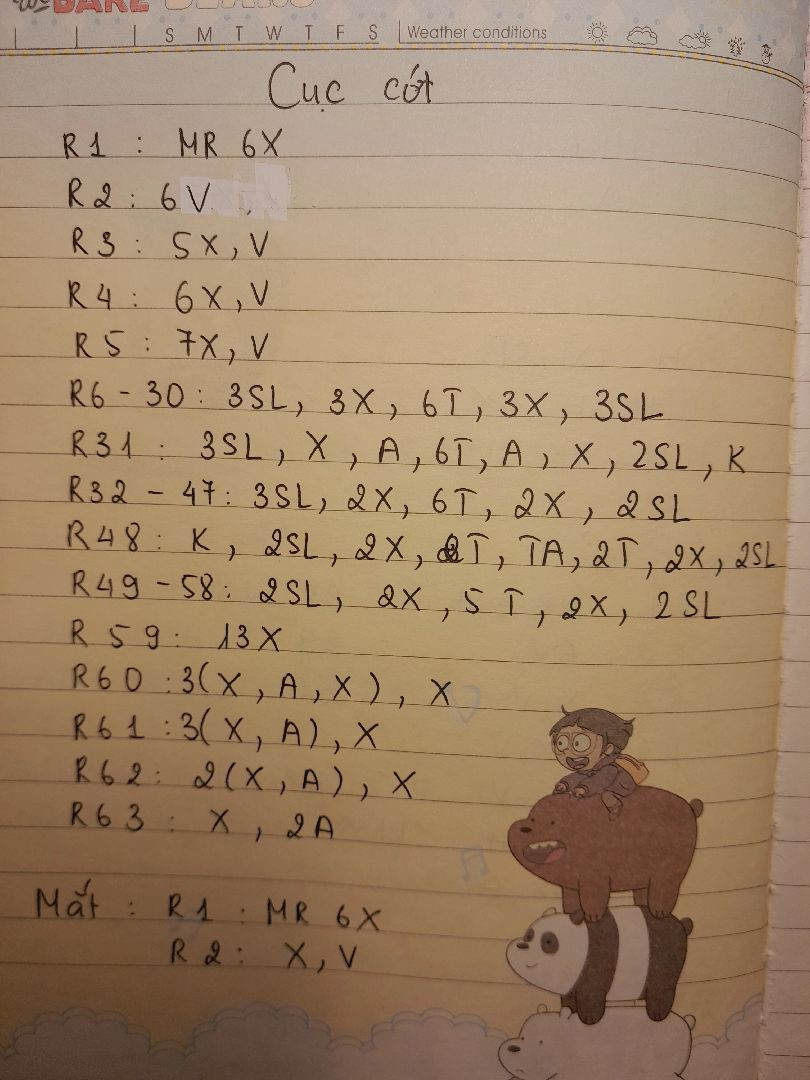 We BARE BEARS
S M T W T F S Weather conditions
Cục cớt
R1 : MR 6X
R2 : 6V
R3 : 5X, V
R4 : 6X, V
R5 : 7X, V
R6 - 30 : 3SL, 3X, 6T, 3X, 3SL
R31 : 3SL, X, A, 6T, A, X, 2SL, K
R32 - 47: 3SL, 2X, 6T, 2X, 2SL
R48 : K, 2SL, 2X, 2T, TA, 2T, 2X, 2SL
R49 - 58: 2SL, 2X, 5T, 2X, 2SL
R59: 13X
R60 : 3(X, A, X), X
R61 : 3(X, A), X
R62: 2(X, A), X
R63 : X, 2A
Mắt : R1 : MR 6X
R2: X, V